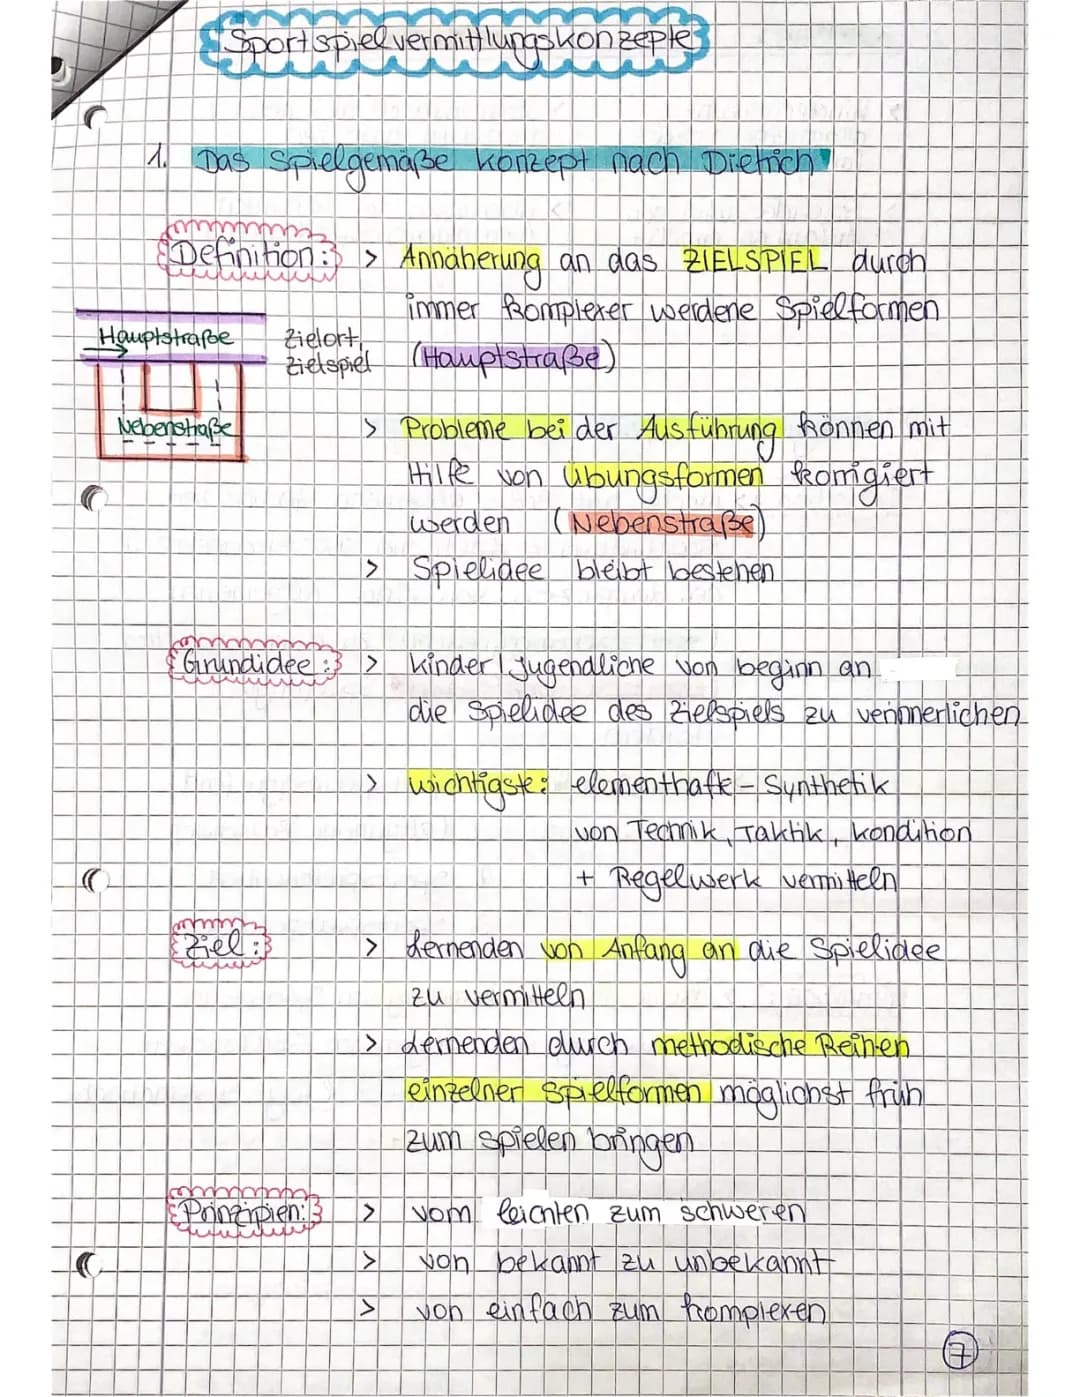 Sportspielvermittlungskonzepte
1. Das Spielgemäße Konzept nach Dietrich
Definition: > Annäherung an das ZIELSPIEL durch
immer komplexer werdene Spielformen
(Hauptstraße)
Hauptstraße
Zielort,
Zielspiel
Nebenstraße
> Probleme bei der Ausführung können mit
Hilfe von Übungsformen korrigiert
werden (Nebenstraße)
> Spielidee bleibt bestehen
Grundidee: > Kinder / Jugendliche von beginn an
die Spielidee des Zielspiels zu verinnerlichen
> wichtigste: elementhafte - Synthetik
von Technik, Taktik, Kondition
+ Regelwerk vermitteln
Ziel: > Lernenden von Anfang an die Spielidee
zu vermitteln
> Lernenden durch methodische Reihen
einzelner Spielformen möglichst früh
zum spielen bringen
Prinzipien: > vom leichten zum schweren
> von bekannt zu unbekannt
> von einfach zum komplexen
7